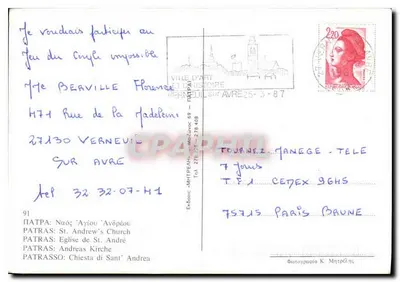 Je voudrais participer au
Jeu du Single impossible
Mme BERVILLE Florence
471 Rue de la Madeleine
27130 VERNEUIL
SUR AVRE
tel 32 32.07.41
91
ΠΑΤΡΑ: Ναὸς Ἁγίου Ἀνδρέου
PATRAS: St. Andrew's Church
PATRAS: Eglise de St. André
PATRAS: Andreas Kirche
PATRASSO: Chiesta di Sant' Andrea
VILLE D'ART
AVRE
-3-87
2,20
TOURNEZ-MANEGE-TELE
7 Jours
TF1 CEDEX 96HS
75715 PARIS BRUNE
Φωτογραφία Κ. Μητρέλης